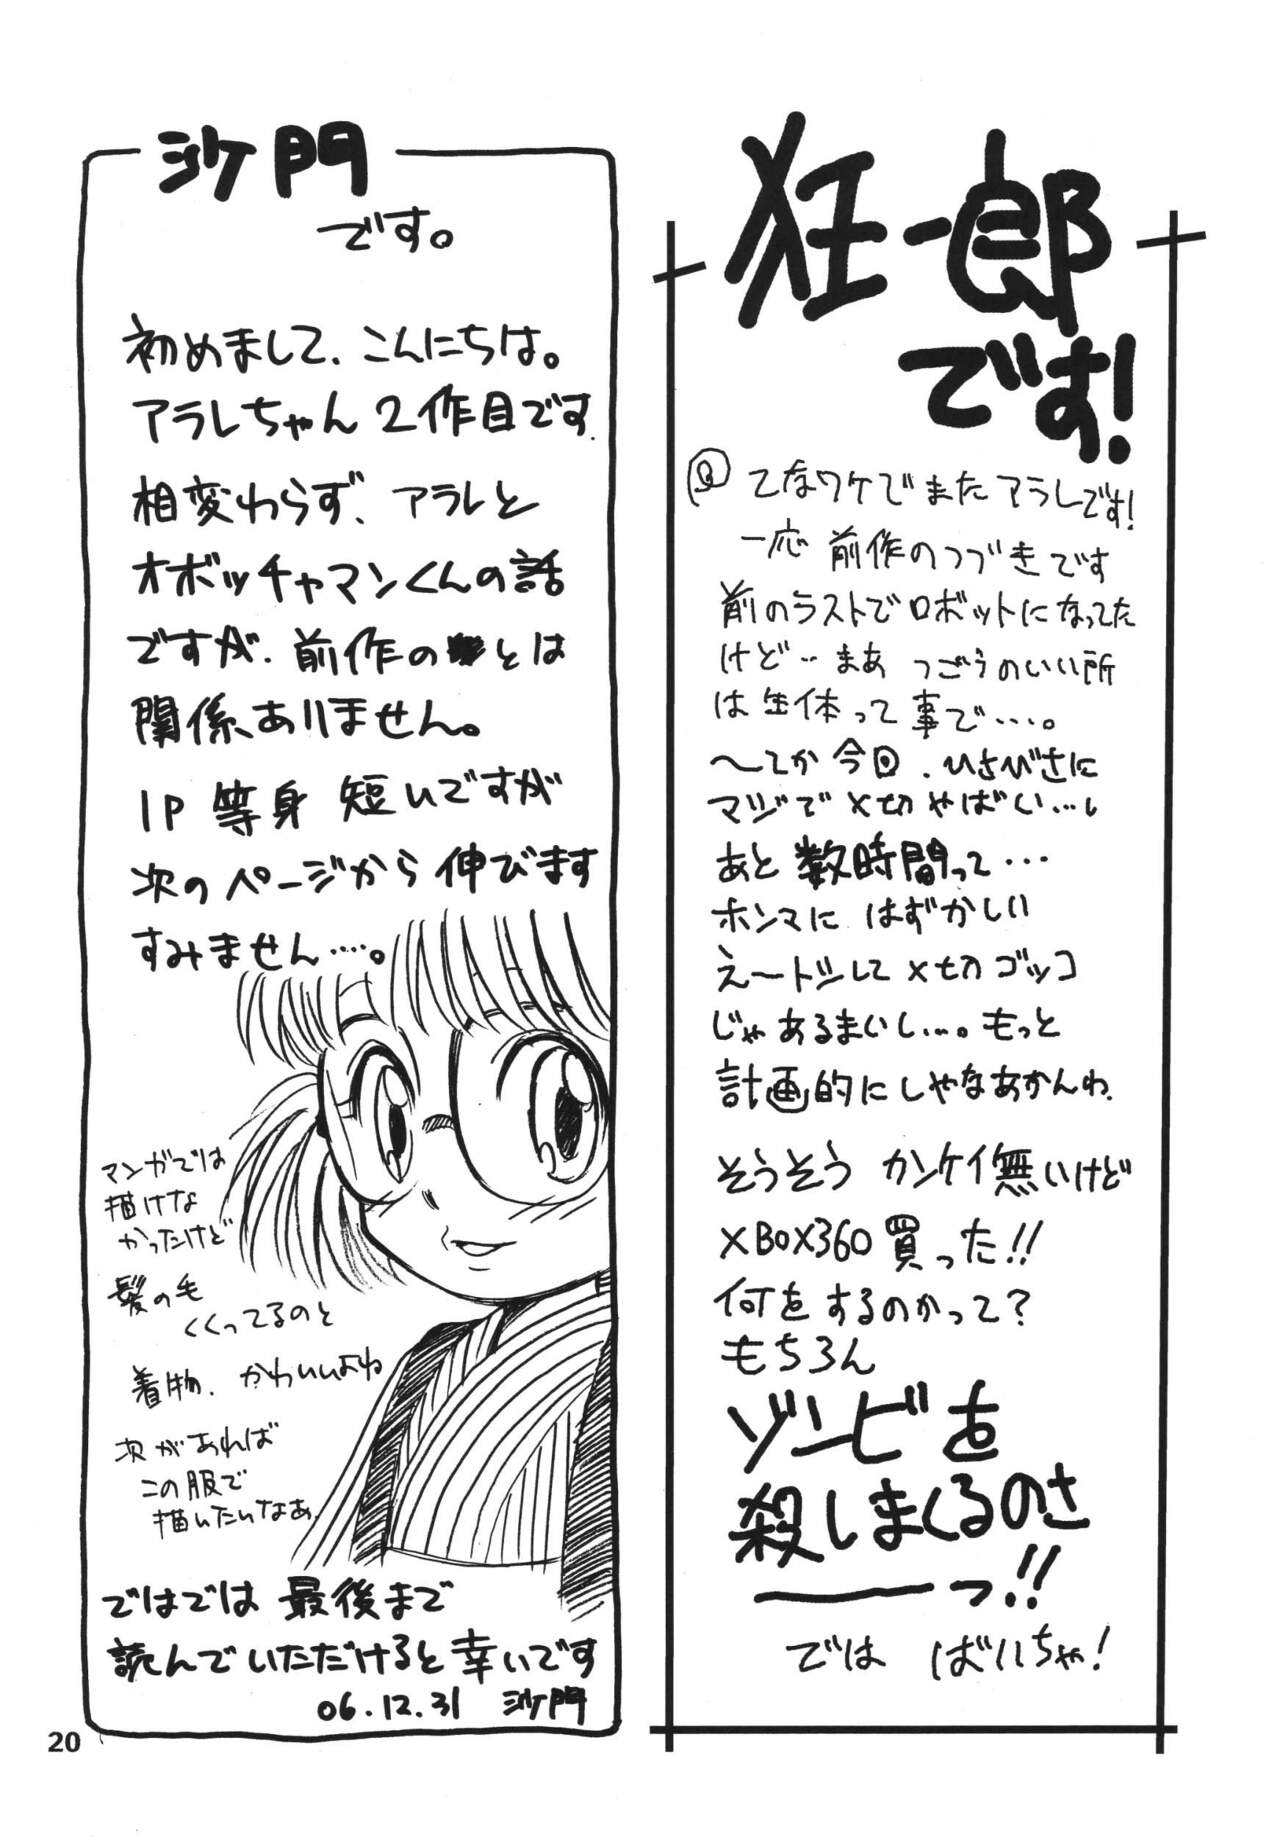 沙門
です。
初めまして、こんにちは。
アラレちゃん2作目です.
相変わらず、アラレと
オボッチャマンくんの話
ですが、前作のとは
関係ありません。
1P 等身 短いですが
次のページから伸びます
すみません……。
マンガでは
描けな
かったけど
髪の毛
くくってるのと
着物、かわいいよね
次があれば
この服で
描いたいなあ.
ではでは 最後まで
読んでいただけると幸いです
06.12.31 沙門
狂一郎
です!
てなワケでまたアラレです!
一応 前作のつづきです
前のラストでロボットになってた
けど…まあ つごうのいい所
は生体って事で……。
〜てか今回、ひさびさに
マジで〆切やばい…。
あと数時間って…
ホンマに はずかしい
え〜トシして〆切ゴッコ
じゃあるまいし…。もっと
計画的にしゃなあかんわ.
そうそう カンケイ無いけど
XBOX360買った!!
何をするのかって?
もちろん
ゾンビを
殺しまくるのさ
ーーっ!!
では ばいちゃ!
20